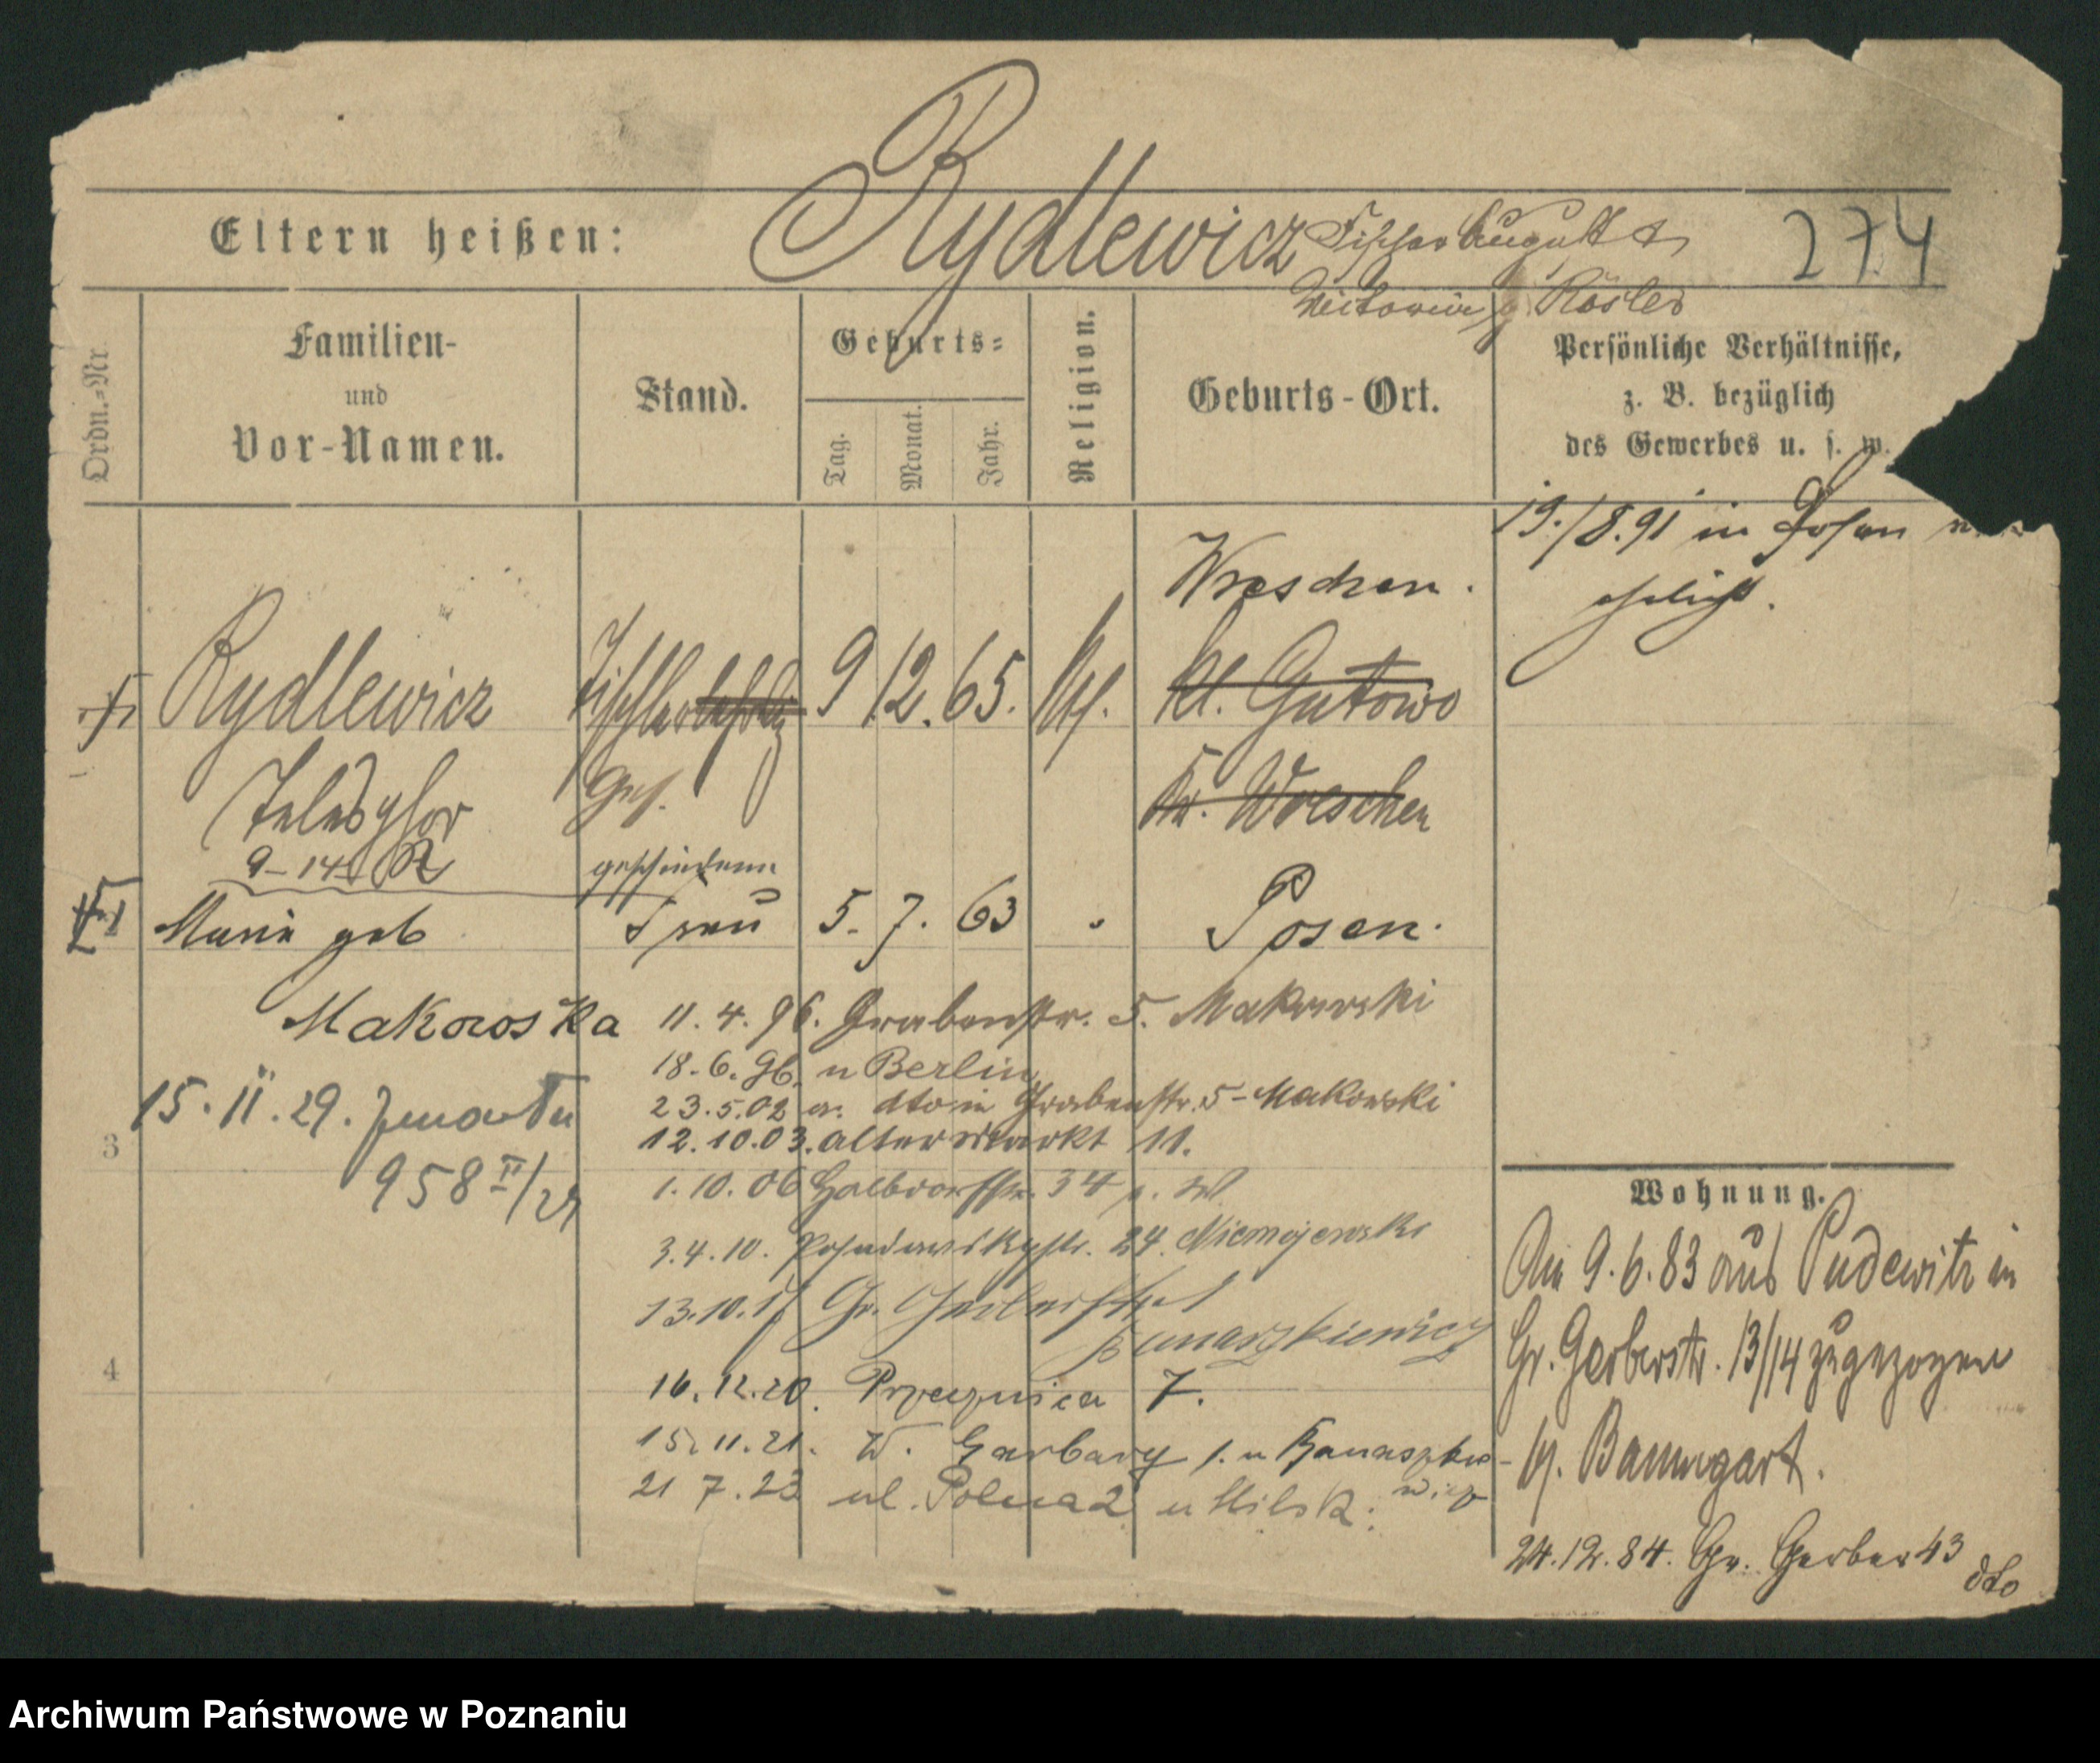 Eltern heißen:
Rydlewicz
Tischler August &
Victoria g. Rösler
274
Ordn.-Nr.
Familien-
und
Vor-Namen.
Stand.
Geburts-
Tag.
Monat.
Jahr.
Religion.
Geburts-Ort.
Persönliche Verhältnisse,
z. B. bezüglich
des Gewerbes u. s. w.
19./8.91 in Posen
ehelicht.
Wreschen.
Rydlewicz
Tischler
9 12. 65.
Kth.
Kl. Gutowo
Telesphor
Ges.
Kr. Wreschen
9-14 R
geschiedene
Marie geb
Frau
5. 7. 63
"
Posen.
Makowska
11. 4. 96. Grabenstr. 5. Makowski
18. 6. 96. n Berlin
23. 5. 02 a. dto in Grabenstr. 5 - Makowski
15. II. 29.
3
12. 10. 03. alter Markt 11.
958 II/29
1. 10. 06 Halbdorfstr. 34
3. 4. 10. Posadowskystr. 24. Niemojewski
13. 10. Gr. Gerberstr 1
Banaszkiewicz
4
16. 12. 20. Przecznica 7.
15. 11. 21. W. Garbary 1. u Banaszkie-
wicz
21 7. 23 ul. Polna 2 u
Wohnung.
Am 9. 6. 83 aus Pudewitz in
Gr. Gerberstr. 13/14 zugezogen
b. Baumgart.
24. 12. 84. Gr. Gerber 43
dto
Archiwum Państwowe w Poznaniu